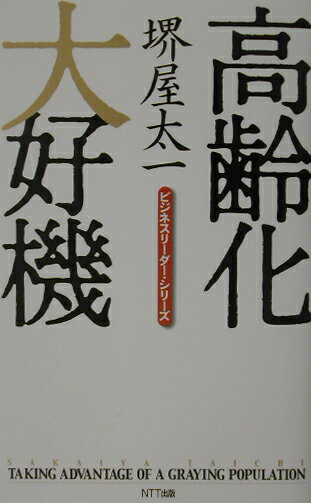 高齢化
大好機
堺屋太一
ビジネスリーダー・シリーズ
SAKAIYA TAICHI
TAKING ADVANTAGE OF A GRAYING POPULATION
NTT出版